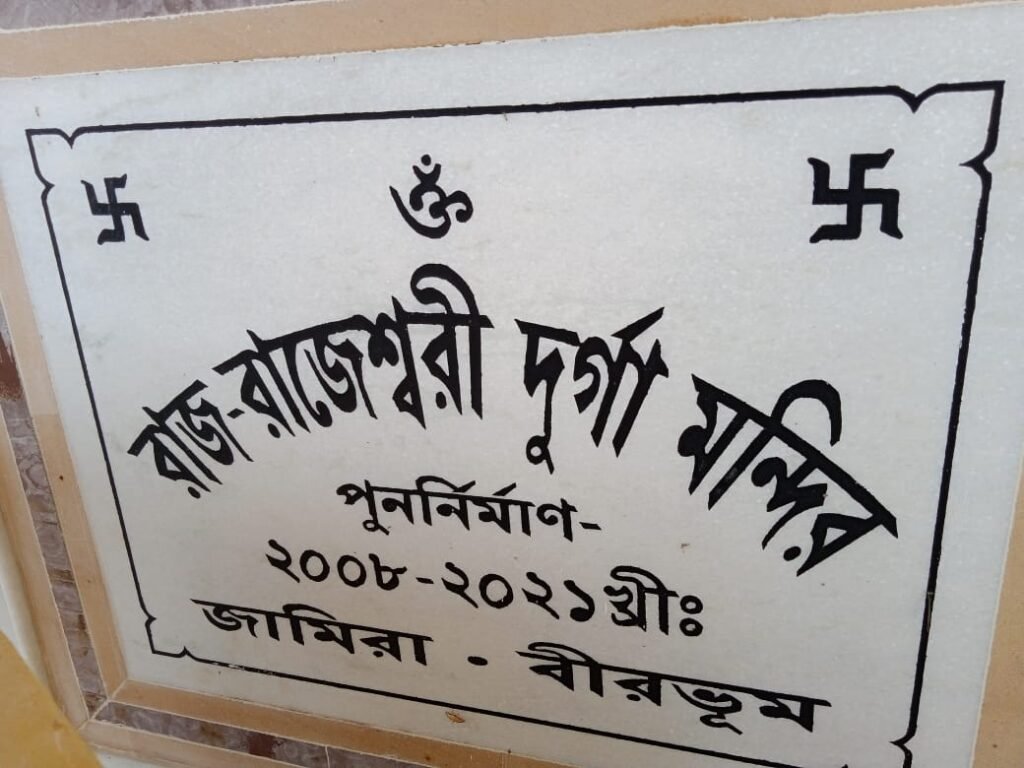 卐 ওঁ 卐
রাজ-রাজেশ্বরী দুর্গা মন্দির
পুনর্নির্মাণ-
২০০৮-২০২১খ্রীঃ
জামিরা • বীরভূম